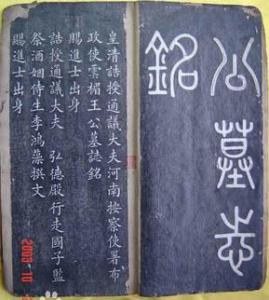 公墓志
銘
皇清誥授通議大夫河南按察使署布
政使雲楣王公墓誌銘
賜進士出身
誥授通議大夫 弘德殿行走國子監
祭酒姻侍生李鴻藻撰文
賜進士出身